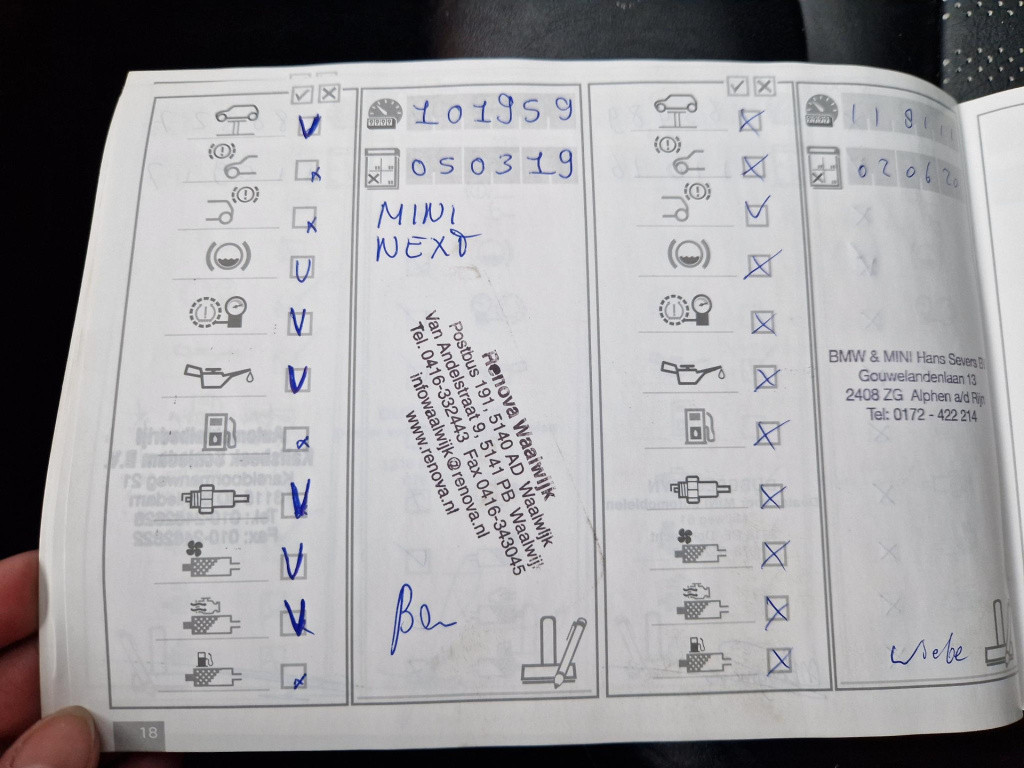 101959
050319
MINI
NEXT
Renova Waalwijk
Postbus 191, 5140 AD Waalwijk
Van Andelstraat 9, 5141 PB Waalwijk
Tel. 0416-332443 Fax 0416-343045
infowaalwijk@renova.nl
www.renova.nl
Ben
18
118111
020620
BMW & MINI Hans Severs B
Gouwelandenlaan 13
2408 ZG Alphen a/d Rijn
Tel: 0172 - 422 214
Wiebe